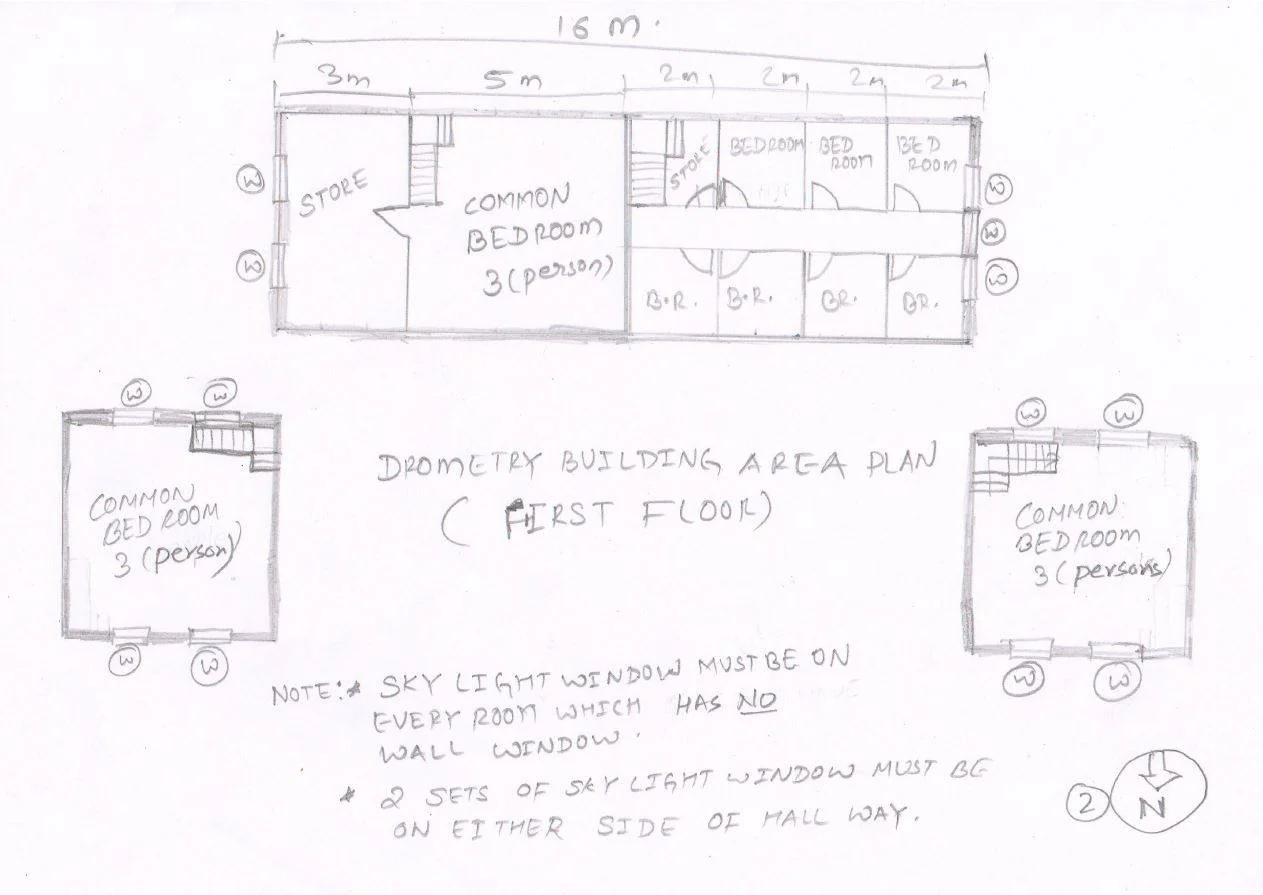 16 m.
3m 5m 2m 2m 2m 2m
STORE
COMMON
BEDROOM
3(person)
STORE
BEDROOM
BED
ROOM
BED
ROOM
B.R. B.R. BR. BR.
W
W
W
W
W
W W
COMMON
BED ROOM
3 (person)
W W
DROMETRY BUILDING AREA PLAN
( FIRST FLOOR)
W W
COMMON
BEDROOM
3 (persons)
W W
NOTE:* SKY LIGHT WINDOW MUST BE ON
EVERY ROOM WHICH HAS NO
WALL WINDOW.
* 2 SETS OF SKY LIGHT WINDOW MUST BE
ON EITHER SIDE OF HALL WAY.
2
N